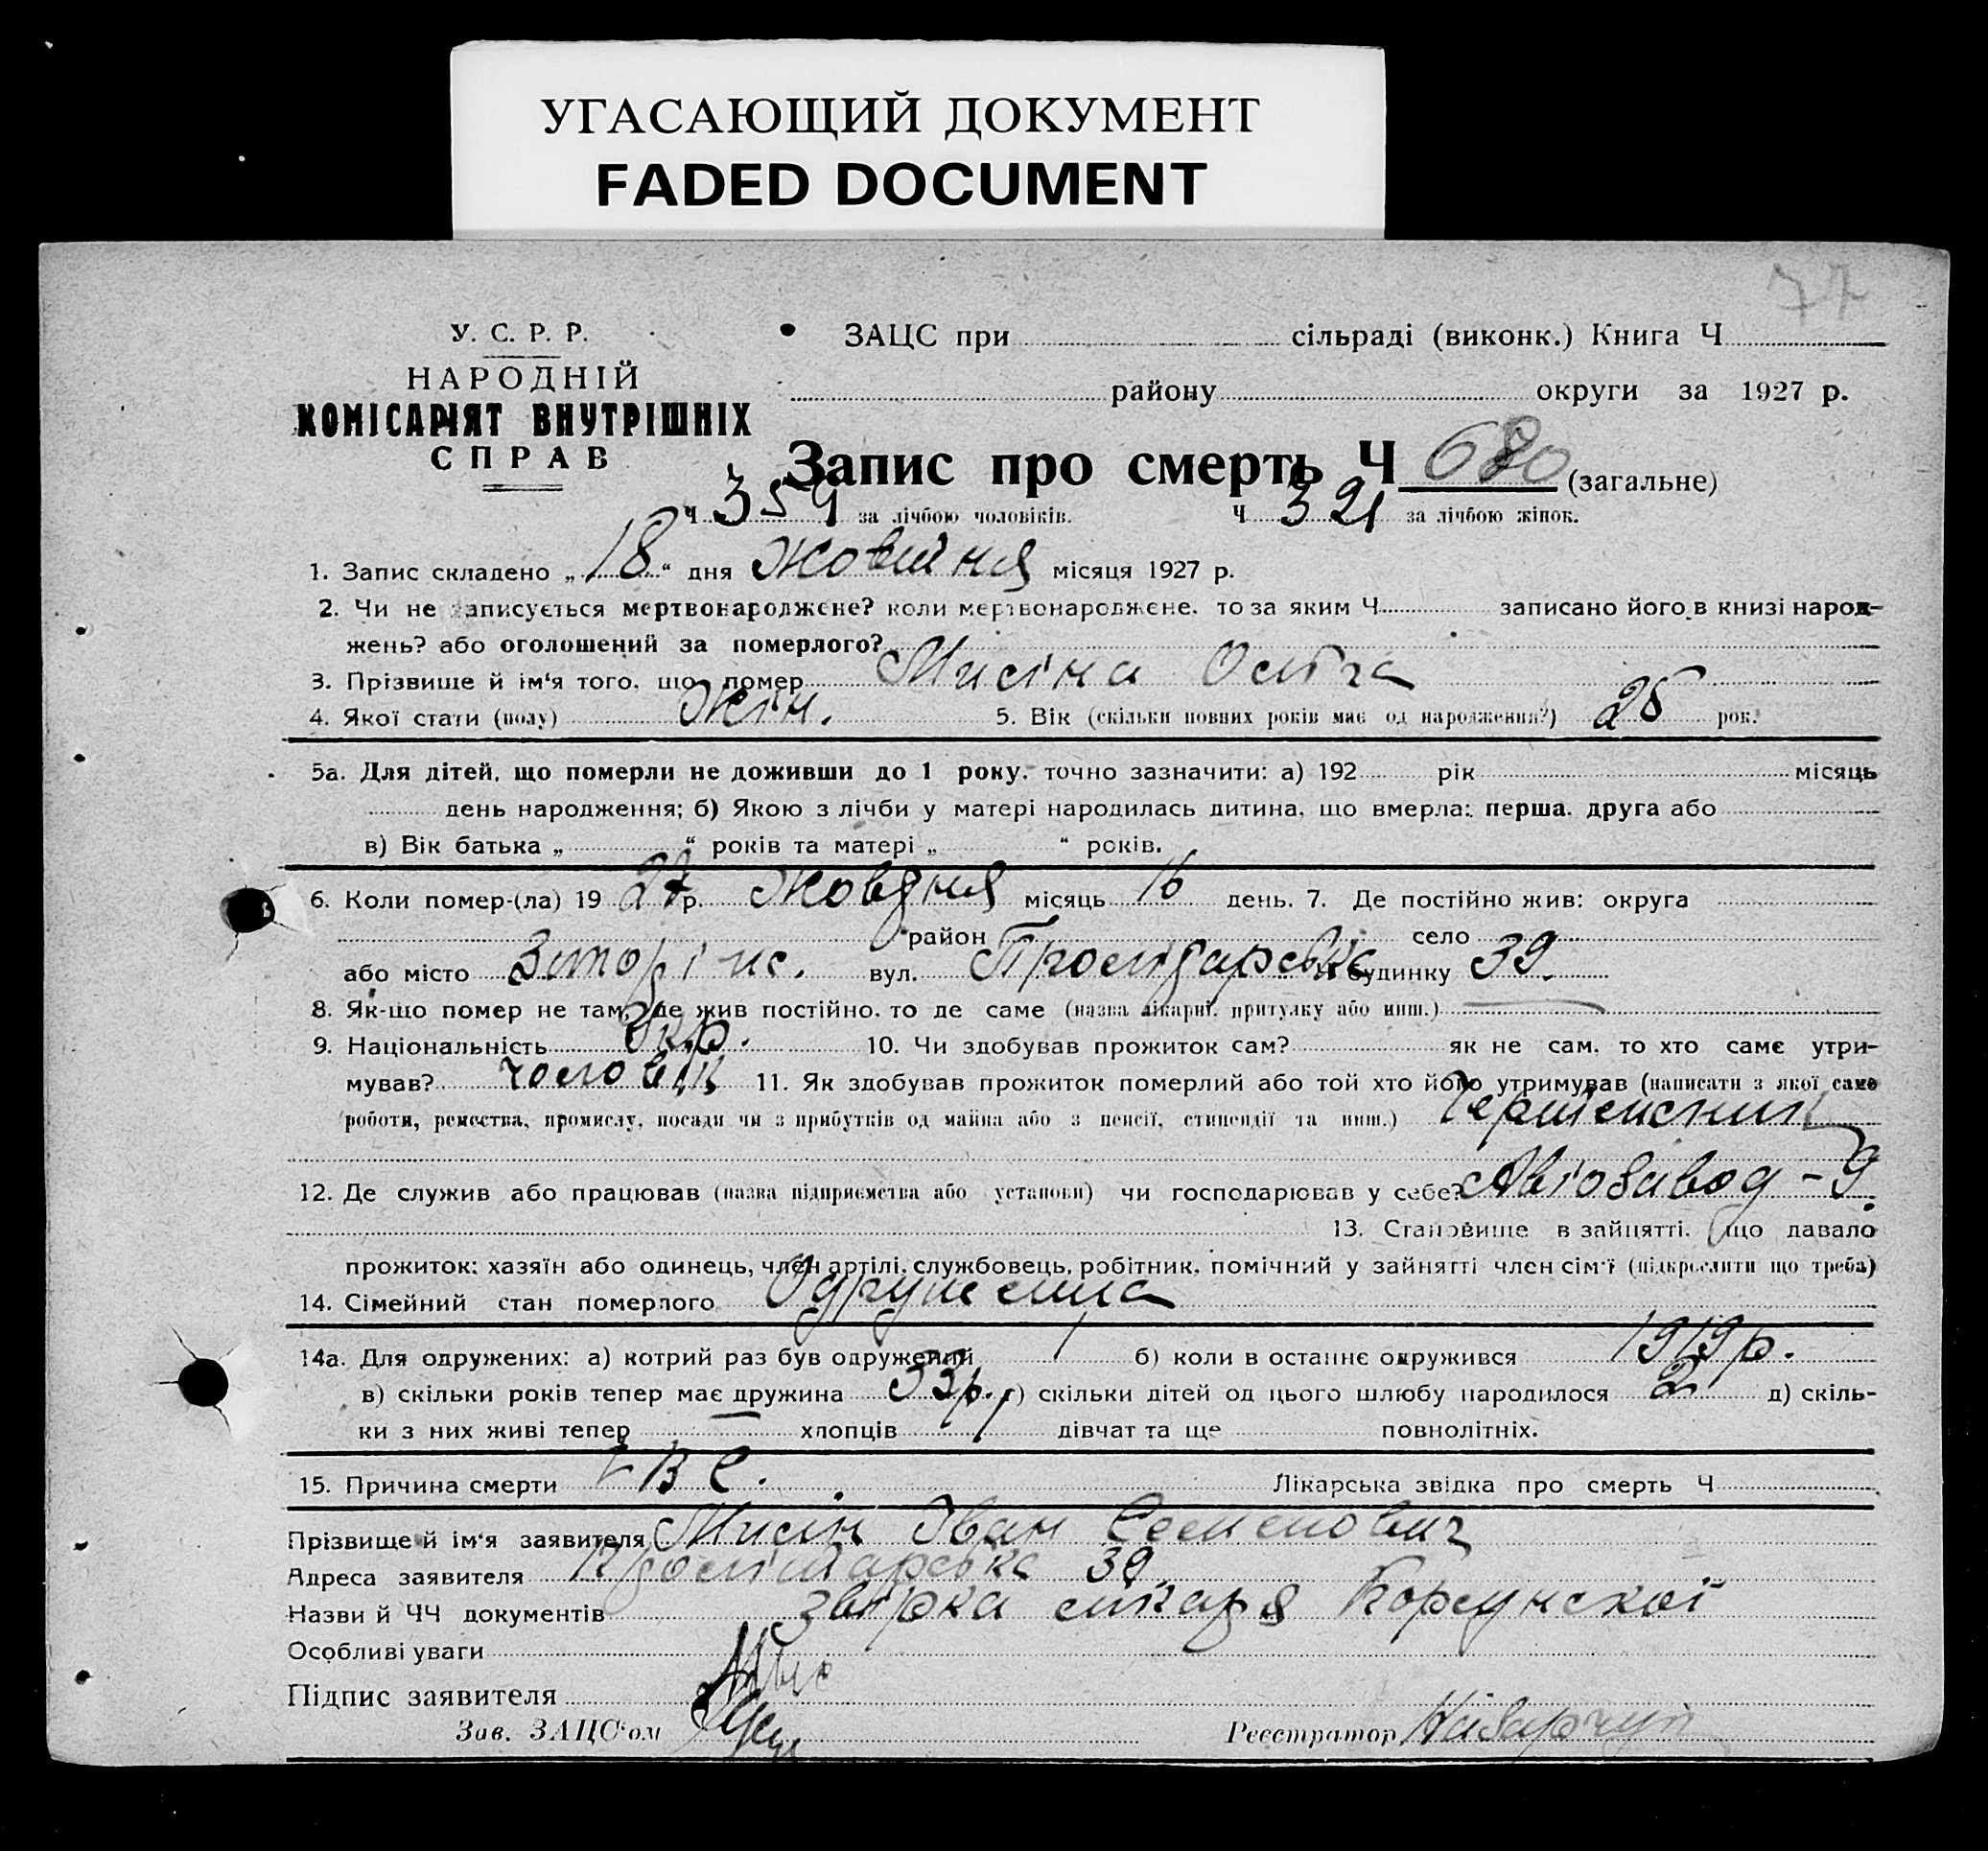 УГАСАЮЩИЙ ДОКУМЕНТ
FADED DOCUMENT
77
У. С. Р. Р.
НАРОДНІЙ
КОМІСАРІЯТ ВНУТРІШНІХ
СПРАВ
ЗАЦС при сільраді (виконк.) Книга Ч
району округи за 1927 р.
Запис про смерть Ч 680 (загальне)
Ч 359 за лічбою чоловіків. Ч 321 за лічбою жінок.
1. Запис складено „18“ дня Жовтня місяця 1927 р.
2. Чи не записується мертвонароджене? коли мертвонароджене, то за яким Ч записано його в книзі народ-
жень? або оголошений за померлого?
3. Прізвище й ім'я того, що помер Мисіна Ольга
4. Якої стати (полу) Жін. 5. Вік (скільки повних років має од народження?) 25 рок.
5а. Для дітей, що померли не доживши до 1 року, точно зазначити: а) 192 рік місяць
день народження; б) Якою з лічби у матері народилась дитина, що вмерла: перша, друга або
в) Вік батька „ “ років та матері „ “ років.
6. Коли помер-(ла) 1927 р. Жовтня місяць 16 день. 7. Де постійно жив: округа
район село
або місто вул. Пролетарська будинку 39.
8. Як-що помер не там, де жив постійно, то де саме (назва лікарні, притулку або инш.)
9. Національність Укр. 10. Чи здобував прожиток сам? як не сам, то хто саме утри-
мував? чоловік 11. Як здобував прожиток померлий або той хто його утримував (написати з якої саме
роботи, ремества, промислу, посади чи з прибутків од майна або з пенсії, стипендії та инш.)
12. Де служив або працював (назва підприємства або установи) чи господарював у себе? Авіозавод - 9
13. Становище в зайнятті, що давало
прожиток: хазяїн або одинець, член артілі, службовець, робітник, помічний у зайнятті член сім'ї (підкреслити що треба)
14. Сімейний стан померлого Одружена
14а. Для одружених: а) котрий раз був одружений 1 б) коли в останнє одружився 1919 р.
в) скільки років тепер має дружина 33 р. г) скільки дітей од цього шлюбу народилося 2 д) скіль-
ки з них живі тепер — хлопців 1 дівчат та ще повнолітніх.
15. Причина смерти Лікарська звідка про смерть Ч
Прізвище й ім'я заявителя Мисін Іван Семенович
Адреса заявителя Пролітарська 39
Назви й ЧЧ документів лікаря Корсунскої
Особливі уваги
Підпис заявителя
Зав. ЗАЦС'ом
Реєстратор